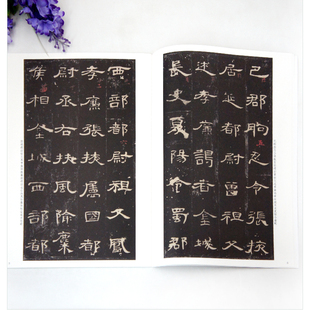 巴郡朐忍令張掖
居延都尉曾祖父
述孝廉謁者金城
長史夏陽令蜀郡
西部都尉祖父鳳
孝廉張掖屬國都
尉丞右扶風隃麋
侯相金城西部都